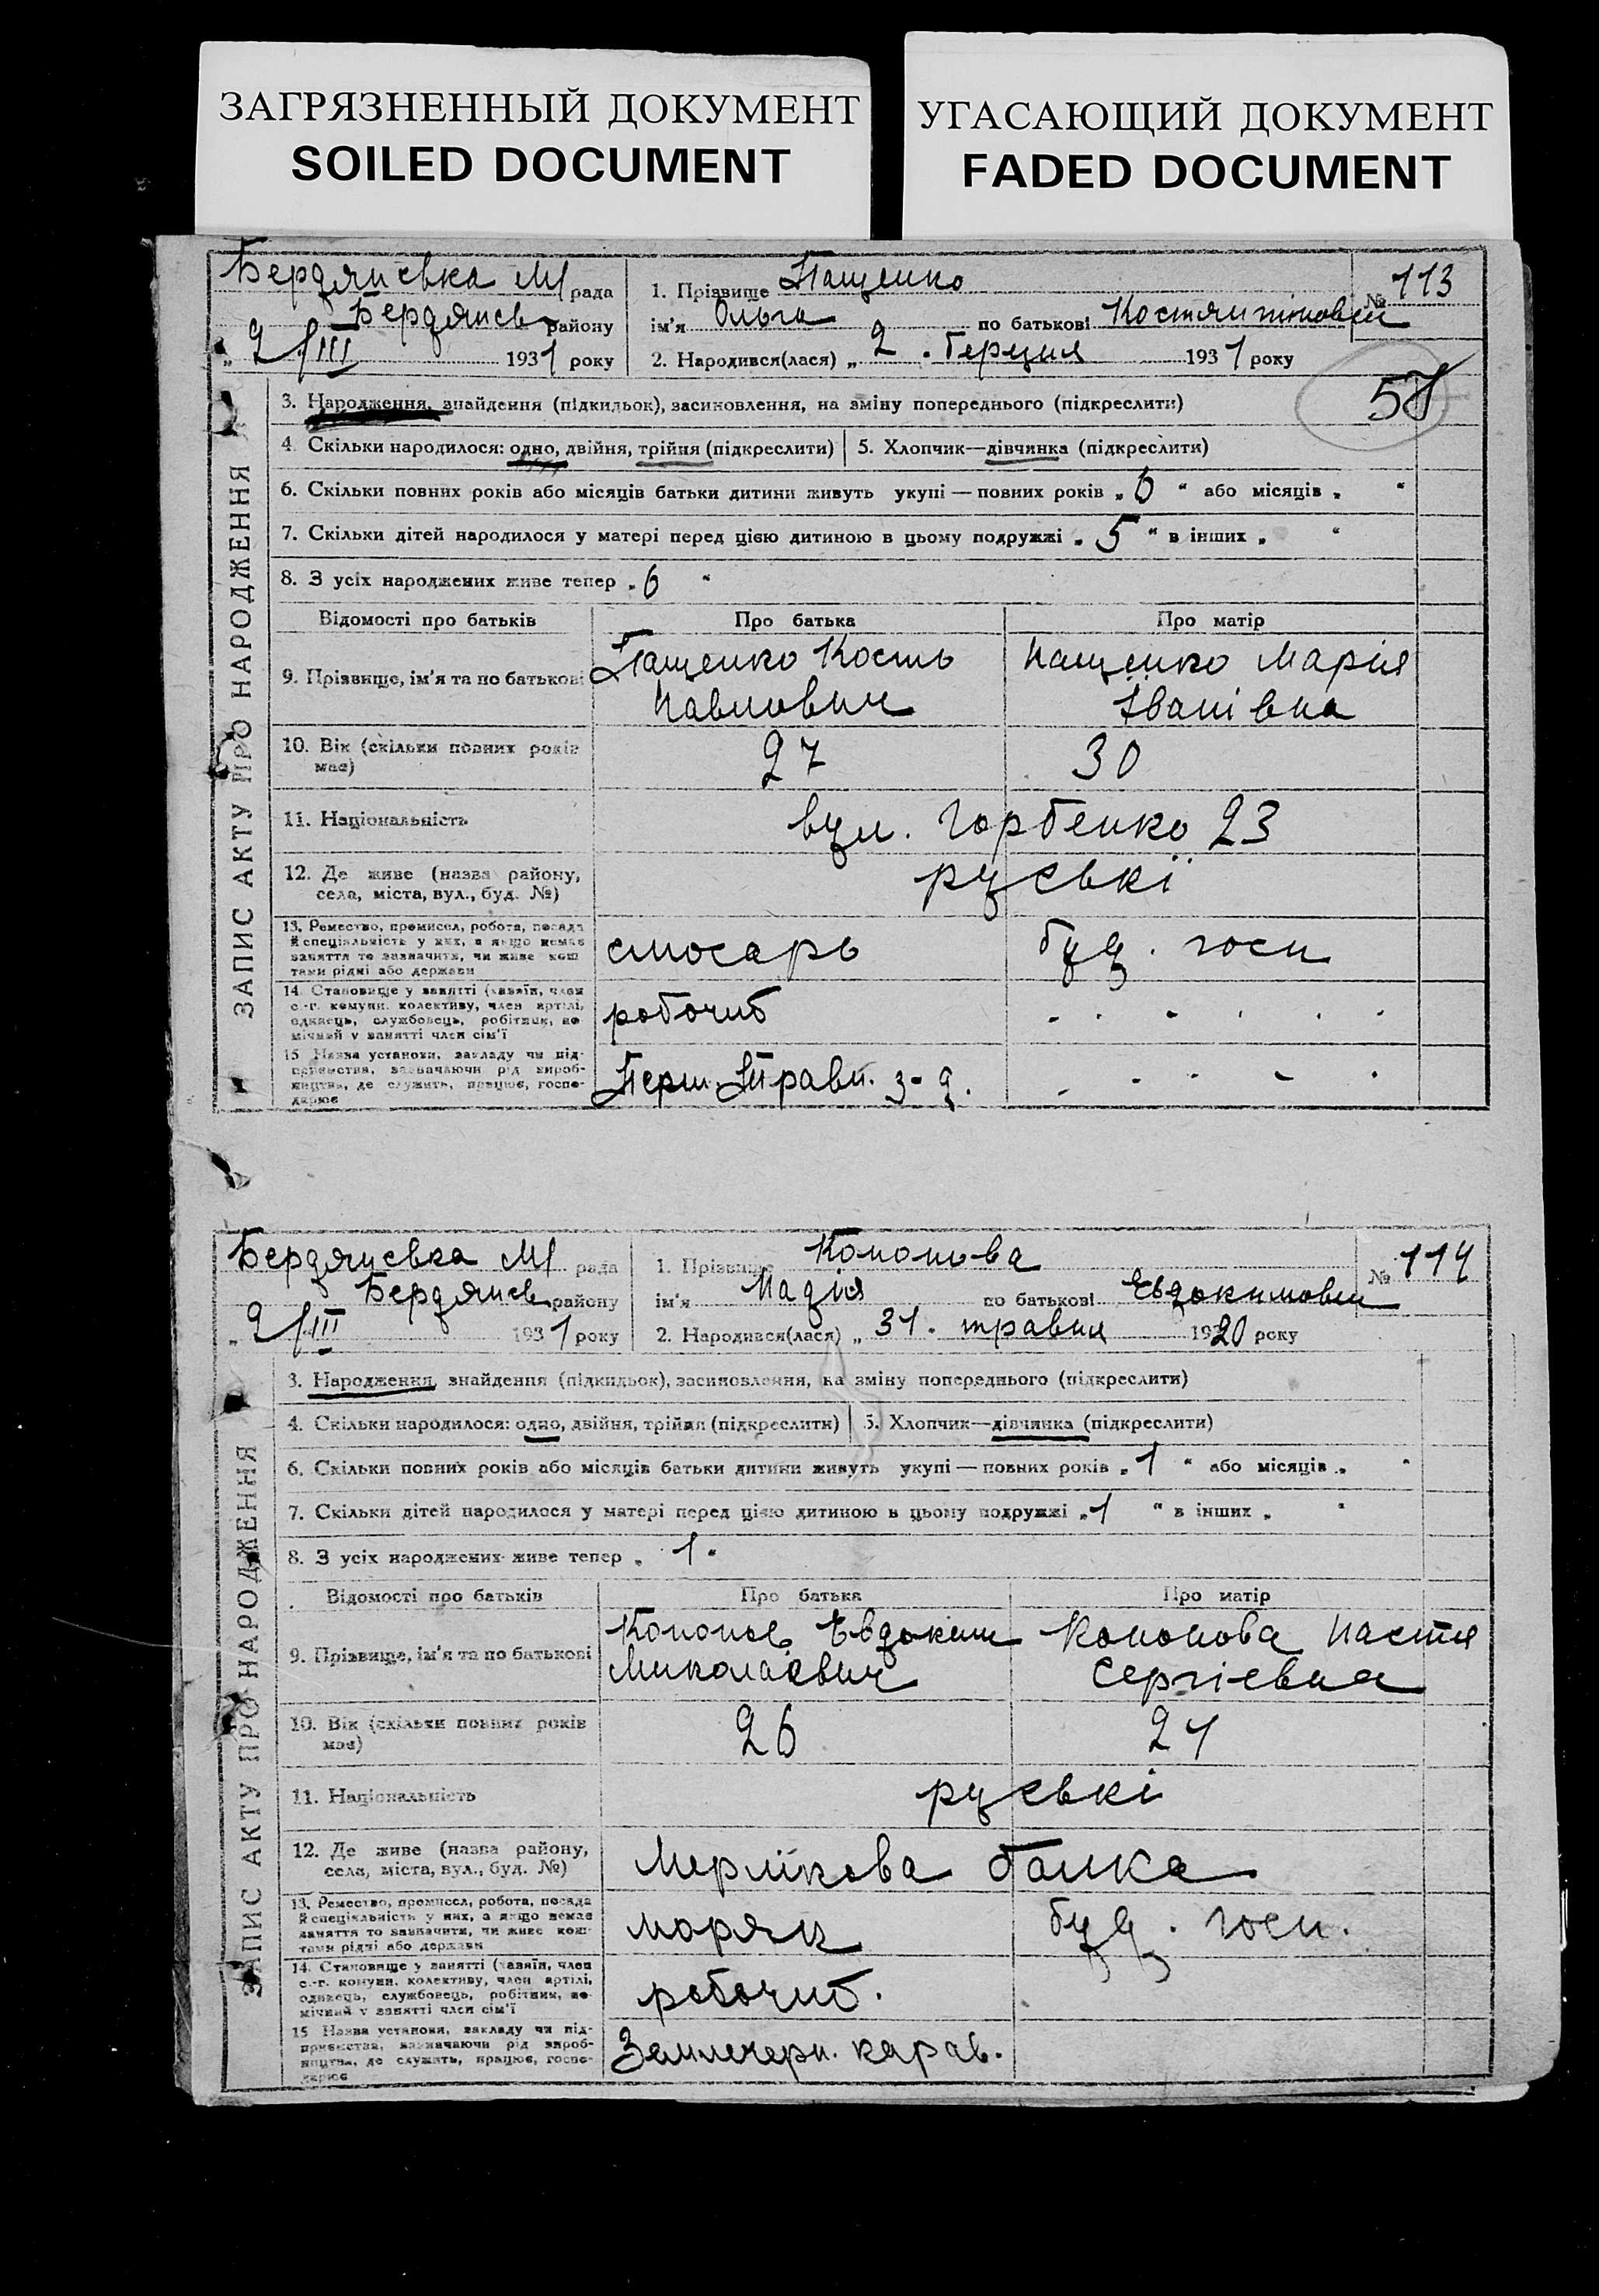 ЗАГРЯЗНЕННЫЙ ДОКУМЕНТ
SOILED DOCUMENT
УГАСАЮЩИЙ ДОКУМЕНТ
FADED DOCUMENT
ЗАПИС АКТУ ПРО НАРОДЖЕННЯ
Бердянська М/ рада
Бердянськ району
„ 2/III 1931 року
1. Прізвище Пащенко
№ 113
ім'я Ольга по батькові Костянтиновна
2. Народився(лася) „ 2 . Берцня 1931 року
58
3. Народження, знайдення (підкидьок), засиновлення, на зміну попереднього (підкреслити)
4. Скільки народилося: одно, двійня, трійня (підкреслити) 5. Хлопчик—дівчинка (підкреслити)
6. Скільки повних років або місяців батьки дитини живуть укупі — повних років „ 6 “ або місяців „ “
7. Скільки дітей народилося у матері перед цією дитиною в цьому подружжі „ 5 “ в інших „ “
8. З усіх народжених живе тепер „ 6 “
Відомості про батьків Про батька Про матір
9. Прізвище, ім'я та по батькові Пащенко Кость Павлович Пащенко Марія Іванівна
10. Вік (скільки повних років має) 27 30
11. Національність вул. Горбенко 23
12. Де живе (назва району, села, міста, вул., буд. №) руські
13. Ремество, промисел, робота, посада й спеціальність у них, а якщо немає заняття то зазначити, чи живе коштами рідні або держави слюсарь буд. госп
14. Становище у занятті (хазяїн, член с.-г. комуни, колективу, член артілі, одинець, службовець, робітник, помічний у занятті член сім'ї робочий
15 Назва установи, закладу чи підприємства, зазначаючи рід виробництва, де служить, працює, господарює Перш. Травн. з-д.
ЗАПИС АКТУ ПРО НАРОДЖЕННЯ
Бердянська М/ рада
Бердянськ району
„ 2/III 1931 року
1. Прізвище Кононова
№ 114
ім'я Надія по батькові Евдокимовна
2. Народився(лася) „ 31. травня 1920 року
3. Народження, знайдення (підкидьок), засиновлення, на зміну попереднього (підкреслити)
4. Скільки народилося: одно, двійня, трійня (підкреслити) 5. Хлопчик—дівчинка (підкреслити)
6. Скільки повних років або місяців батьки дитини живуть укупі — повних років „ 1 “ або місяців „ “
7. Скільки дітей народилося у матері перед цією дитиною в цьому подружжі „ 1 “ в інших „ “
8. З усіх народжених живе тепер „ 1 “
Відомості про батьків Про батька Про матір
9. Прізвище, ім'я та по батькові Кононов Евдоким Миколаєвич Кононова Настя Сергієвна
10. Вік (скільки повних років має) 26 21
11. Національність руські
12. Де живе (назва району, села, міста, вул., буд. №) Мерлікова балка
13. Ремество, промисел, робота, посада й спеціальність у них, а якщо немає заняття то зазначити, чи живе коштами рідні або держави моряк буд. госп.
14. Становище у занятті (хазяїн, член с.-г. комуни, колективу, член артілі, одинець, службовець, робітник, помічний у занятті член сім'ї робочий.
15 Назва установи, закладу чи підприємства, зазначаючи рід виробництва, де служить, працює, господарює Землечерп. карав.